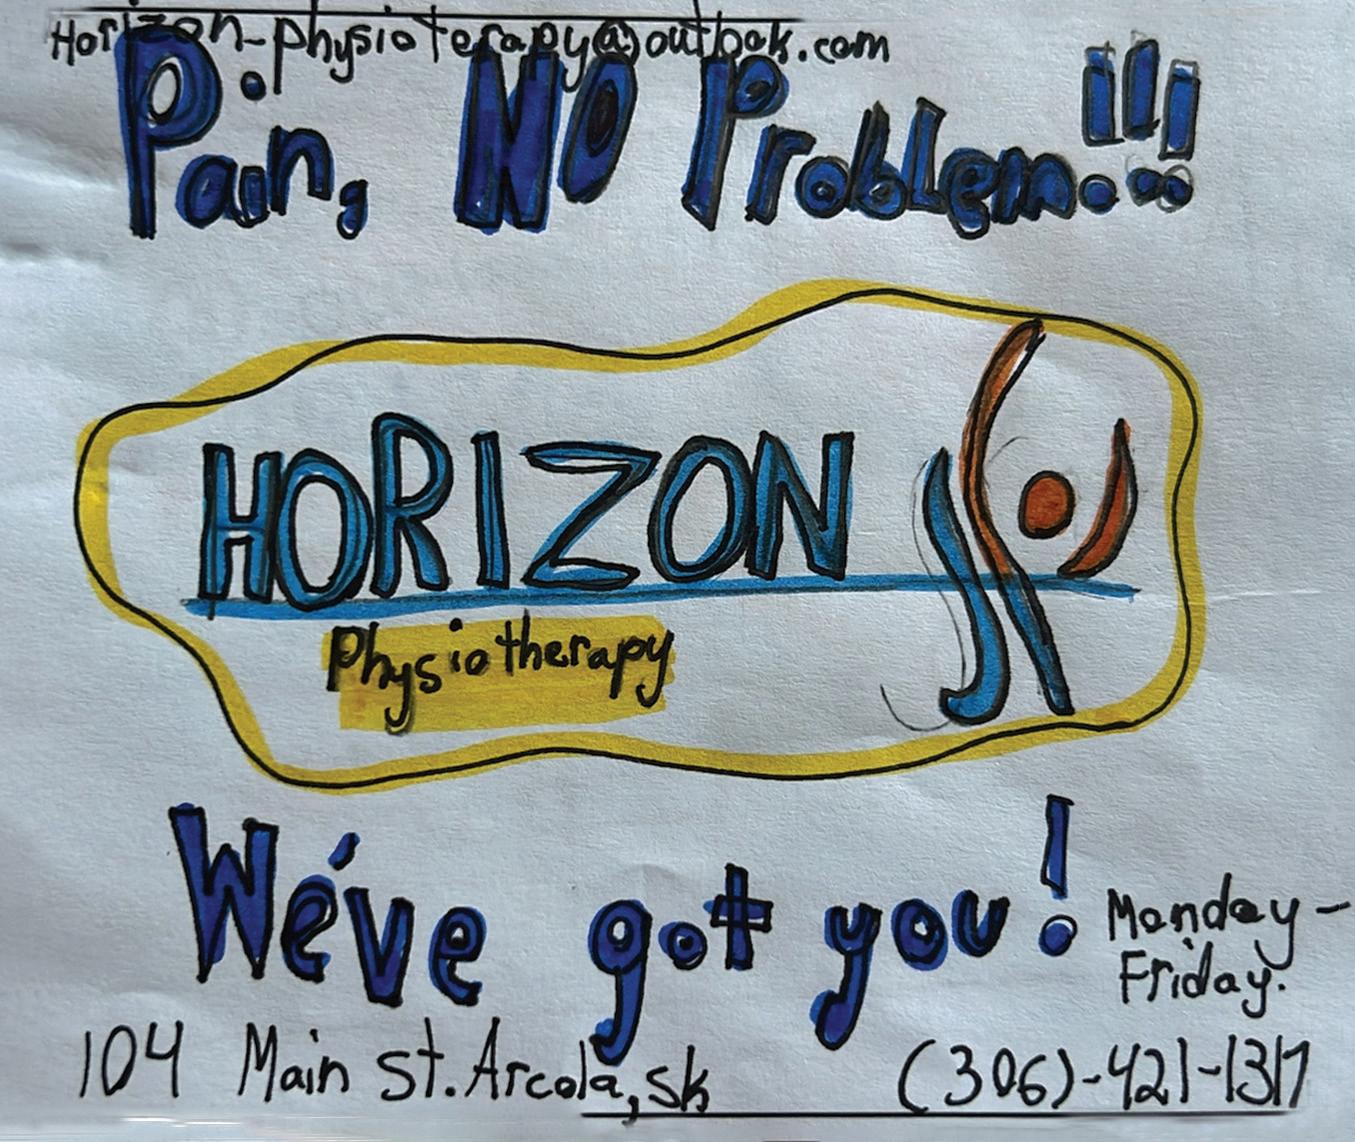 Horizon-physioterapy@outlook.com
Pain, NO Problem!!!
HORIZON
Physiotherapy
We've got you!
Monday-
Friday.
104 Main St. Arcola, SK
(306)-421-1317